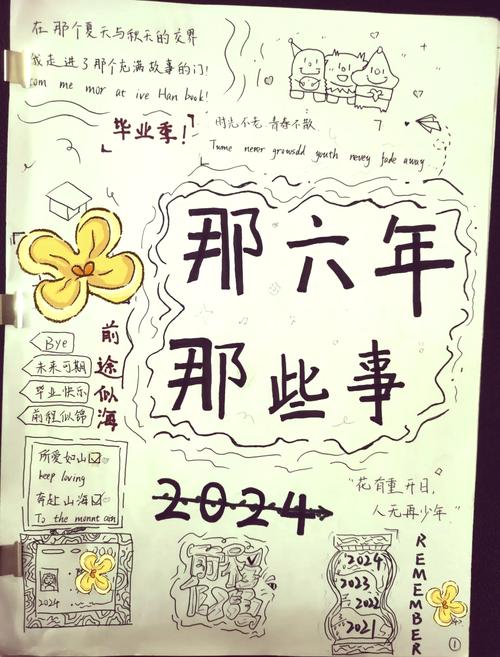 在那个夏天与秋天的交界
我走进了那个充满故事的门!
com me mor at ive Han book!
毕业季!
时光不老 青春不散
Tume never growsdd youth nevey fade away
那六年
那些事
前途似海
Bye
未来可期
毕业快乐
前程似锦
所爱如山
keep loving
奔赴山海
To the mount
2024
"花有重开日,
人无再少年"
2024
前程
2024
2023
2022
2021
REMEMBER
1